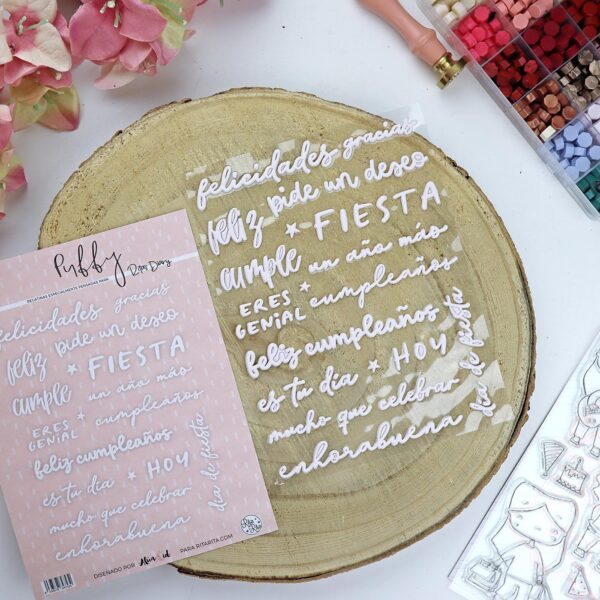 felicidades gracias
feliz pide un deseo
* FIESTA
cumple un año más
ERES GENIAL * cumpleaños
feliz cumpleaños
es tu día * HOY
mucho que celebrar
enhorabuena
día de fiesta
Puffy
PEGATINAS ESPECIALMENTE PENSADAS PARA
felicidades gracias
feliz pide un deseo
* FIESTA
cumple un año más
ERES GENIAL * cumpleaños
feliz cumpleaños
es tu día * HOY
mucho que celebrar
enhorabuena
día de fiesta
DISEÑADO POR
PARA RITARITA.COM